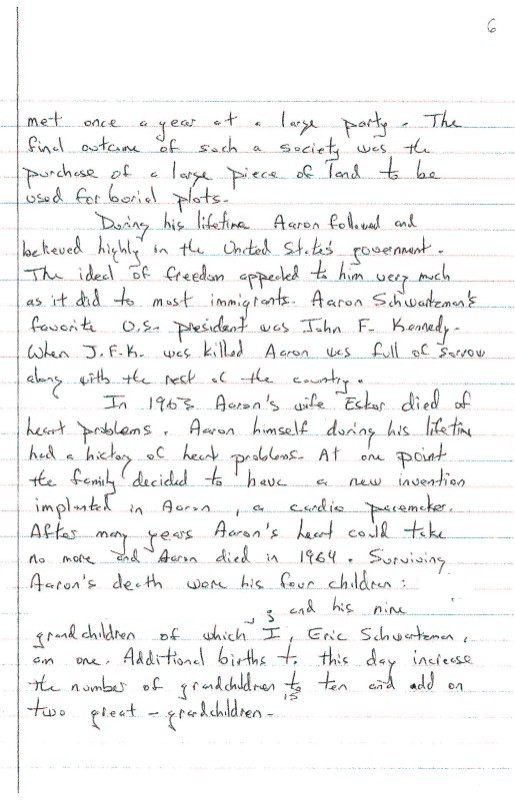 6
met once a year at a large party. The
final outcome of such a society was the
purchase of a large piece of land to be
used for burial plots.
During his lifetime Aaron followed and
believed highly in the United States government.
The ideal of freedom appealed to him very much
as it did to most immigrants. Aaron Schwartzman's
favorite U.S. president was John F. Kennedy.
When J.F.K. was killed Aaron was full of sorrow
along with the rest of the country.
In 1963 Aaron's wife Esker died of
heart problems. Aaron himself during his lifetime
had a history of heart problems. At one point
the family decided to have a new invention
implanted in Aaron, a cardio pacemaker.
After many years Aaron's heart could take
no more and Aaron died in 1964. Surviving
Aaron's death were his four children:
3 and his nine
grandchildren of which I, Eric Schwartzman,
am one. Additional births to this day increase
the number of grandchildren to ten and add on
15
two great-grandchildren.